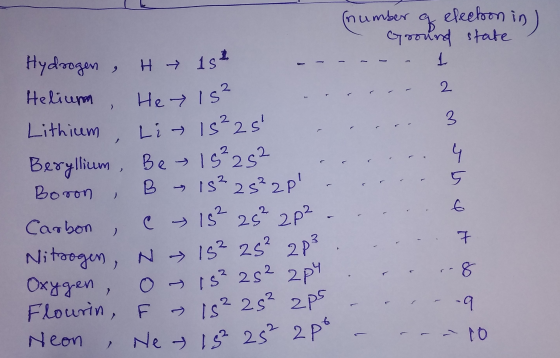 (number of electron in)
Ground state
Hydrogen, H → 1s¹ ------ 1
Helium, He → 1s² ....... 2
Lithium, Li → 1s² 2s¹ ..... 3
Beryllium, Be → 1s² 2s² ..... 4
Boron, B → 1s² 2s² 2p¹ ..... 5
Carbon, C → 1s² 2s² 2p² ..... 6
Nitrogen, N → 1s² 2s² 2p³ ..... 7
Oxygen, O → 1s² 2s² 2p⁴ ..... 8
Flourin, F → 1s² 2s² 2p⁵ .... 9
Neon, Ne → 1s² 2s² 2p⁶ ---- 10